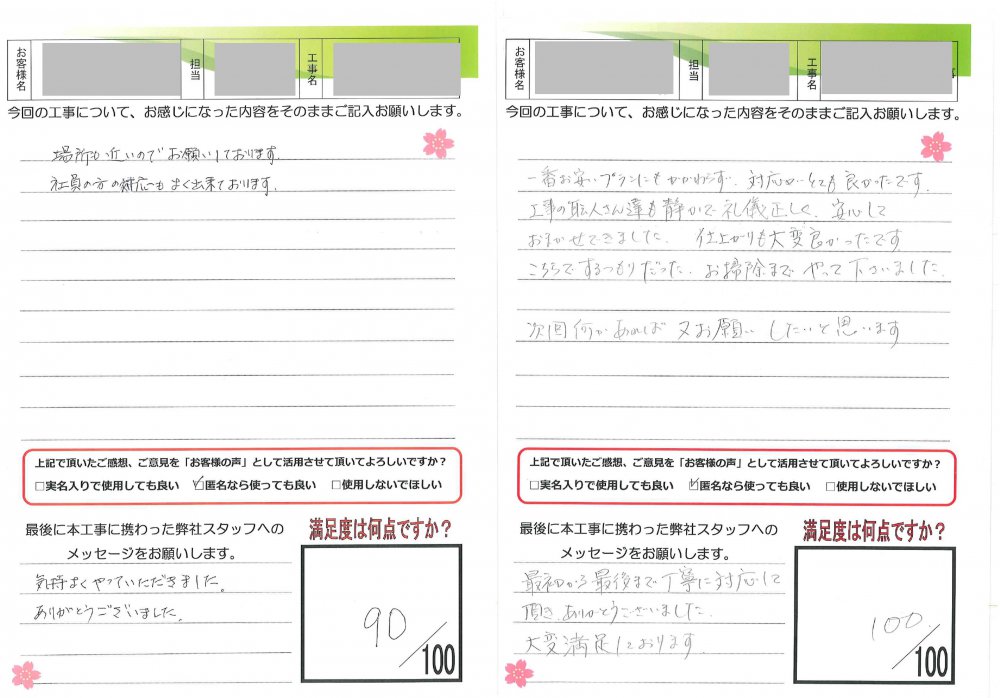 お客様名
担当
工事名
今回の工事について、お感じになった内容をそのままご記入お願いします。
場所も近いのでお願いしております。
社員の方の対応もよく出来ております。
上記で頂いたご感想、ご意見を「お客様の声」として活用させて頂いてよろしいですか？
□実名入りで使用しても良い ☑匿名なら使っても良い □使用しないでほしい
最後に本工事に携わった弊社スタッフへの
メッセージをお願いします。
気持よくやっていただきました。
ありがとうございました。
満足度は何点ですか？
90／100
お客様名
担当
工事名
今回の工事について、お感じになった内容をそのままご記入お願いします。
一番お安いプランにもかかわらず、対応がとても良かったです。
工事の職人さん達も静かで礼儀正しく、安心して
おまかせできました。 仕上がりも大変良かったです
こちらでするつもりだった、お掃除まで やって下さいました。
次回何かあれば 又お願いしたいと思います
上記で頂いたご感想、ご意見を「お客様の声」として活用させて頂いてよろしいですか？
□実名入りで使用しても良い ☑匿名なら使っても良い □使用しないでほしい
最後に本工事に携わった弊社スタッフへの
メッセージをお願いします。
最初から最後まで丁寧に対応して
頂き、ありがとうございました。
大変満足しております。
満足度は何点ですか？
100／100